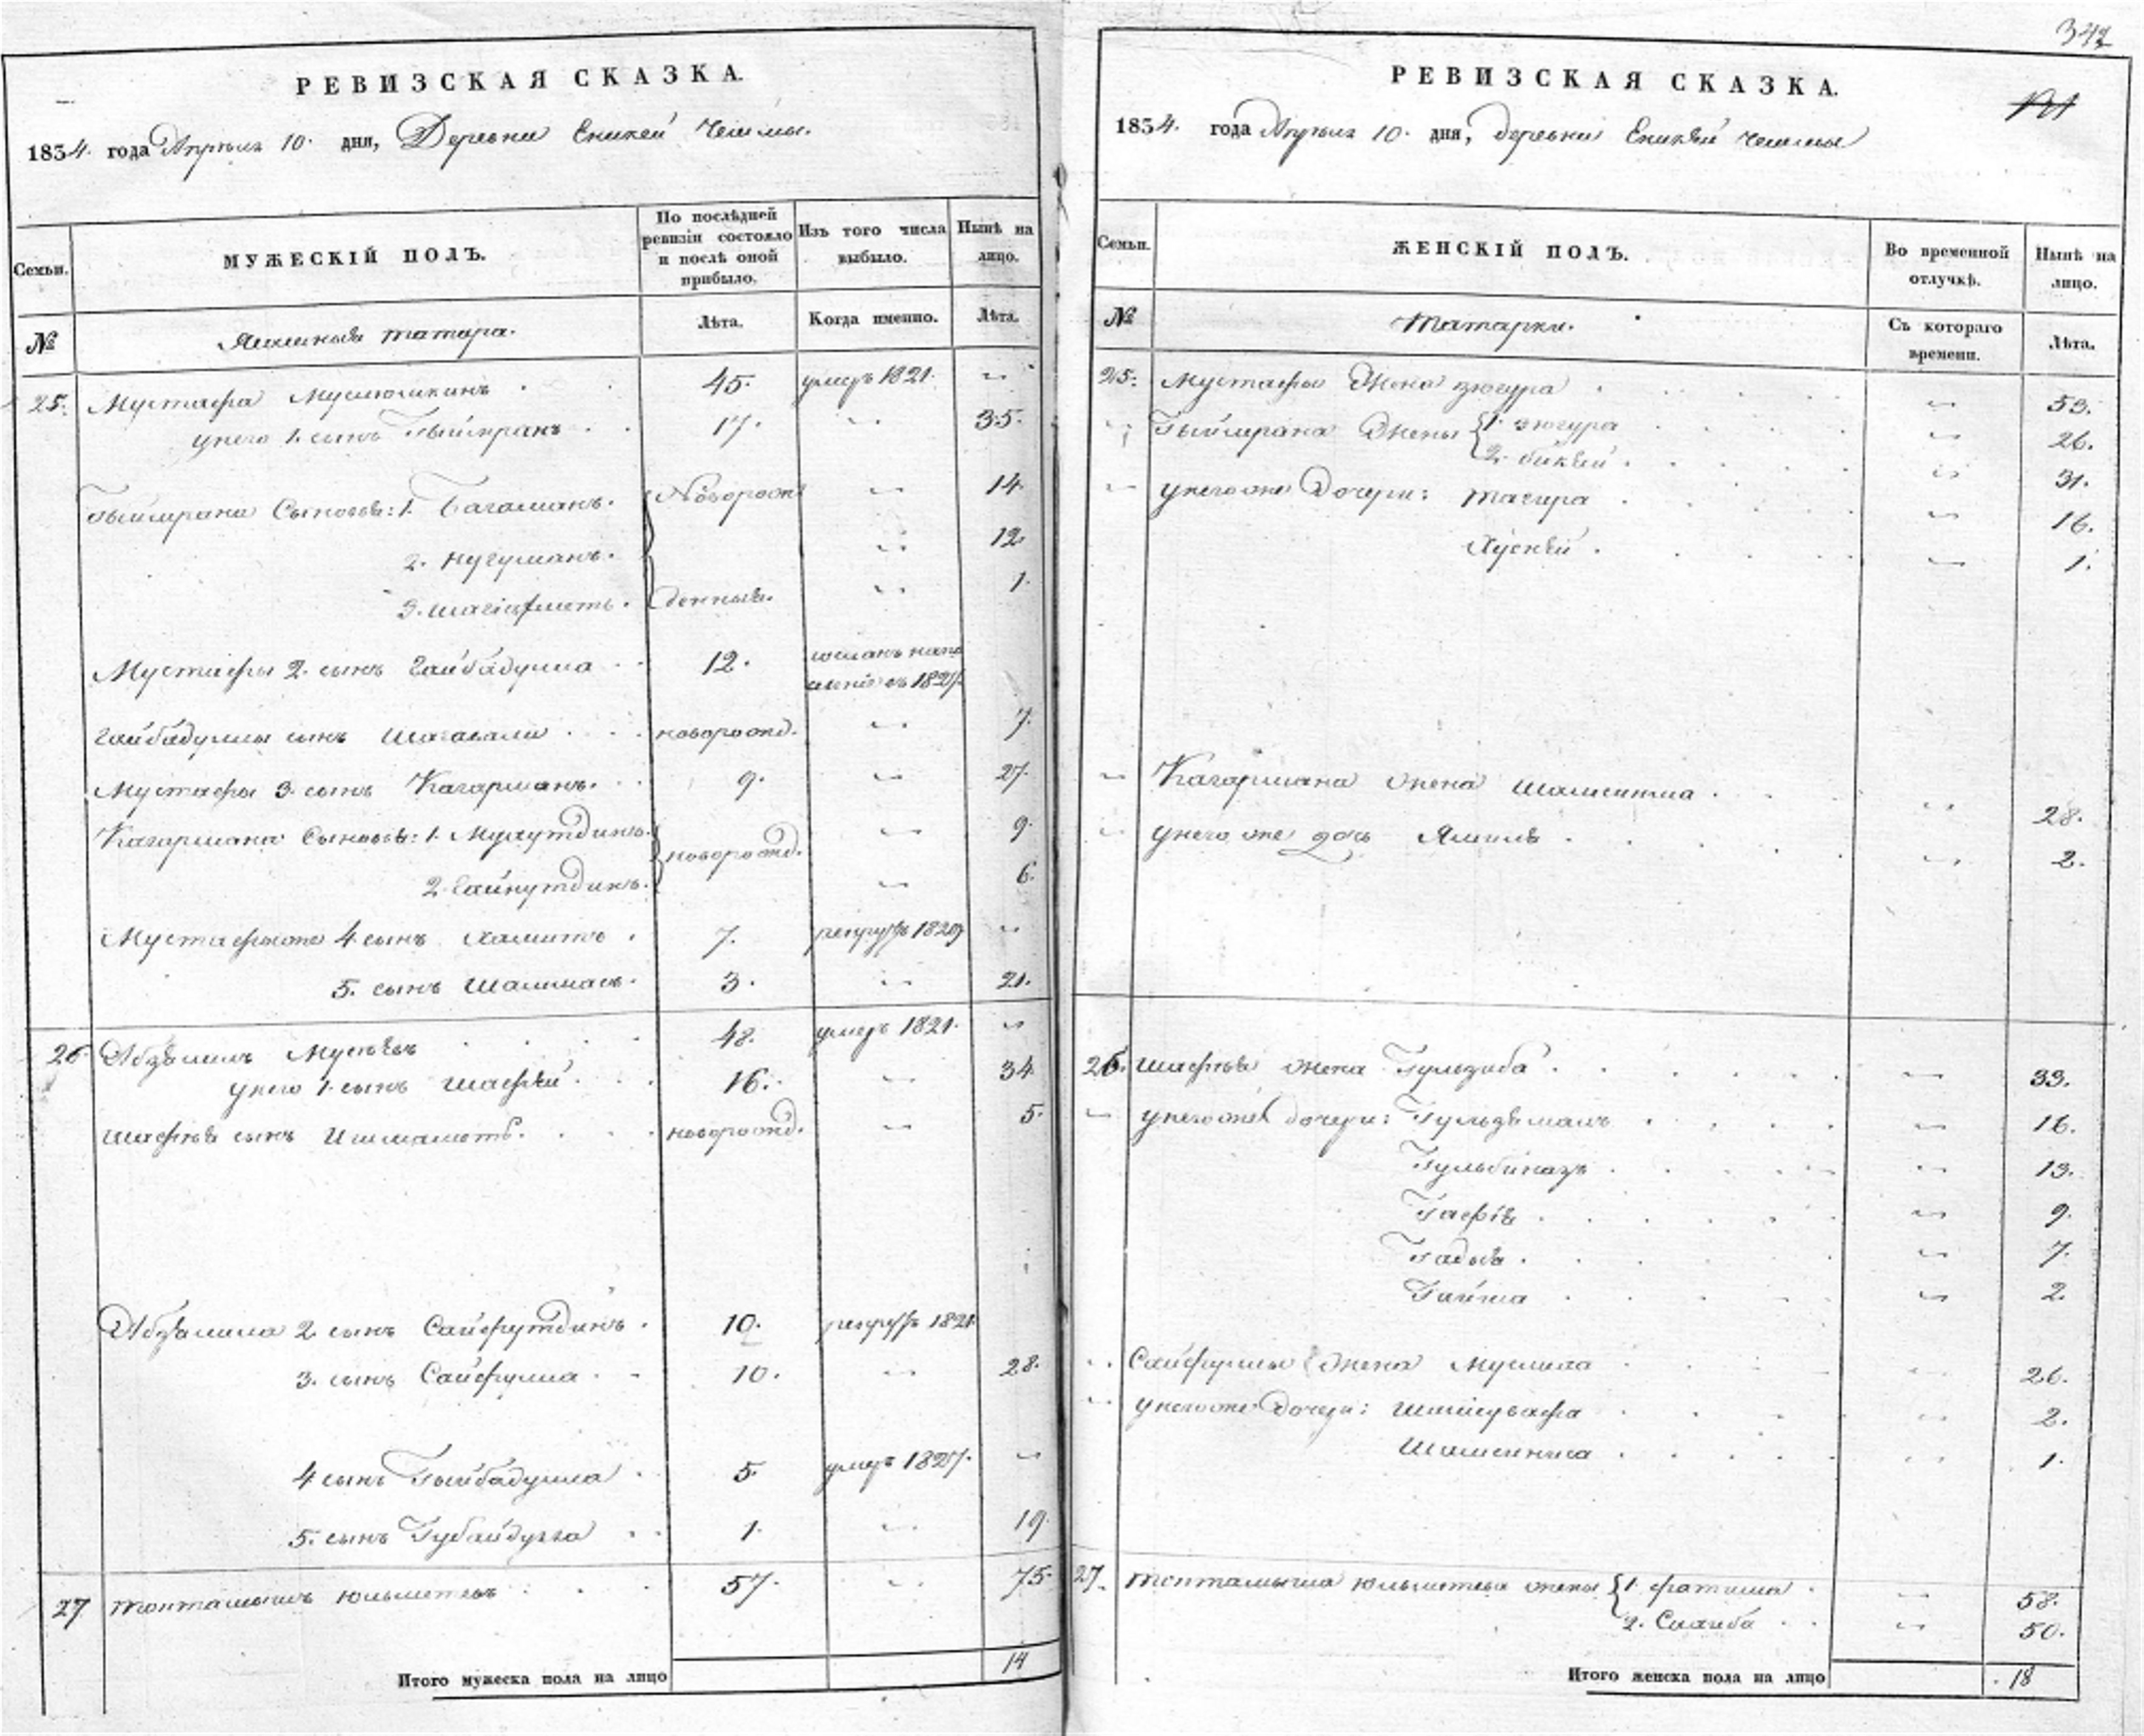 342
РЕВИЗСКАЯ СКАЗКА.
1834. года Апреля 10. дня, Деревни Еникей Чешмы.
Семьи. МУЖЕСКІЙ ПОЛЪ. По послѣдней ревизіи состояло и послѣ оной прибыло. Изъ того числа выбыло. Нынѣ на лицо.
№ татара. Лѣта. Когда именно. Лѣта.
25. Мустафа Муслюмкинъ 45. умеръ 1821. „
у него 1. сынъ 17. „ 35.
Сыновья: 1. Багаманъ. Новорож „ 14.
2. Нугуманъ. „ 12.
3. денныя. „ 1.
Мустафы 2. сынъ Гайбадулла 12. 1827.
Гайбадуллы сынъ Шагавали новорожд. „ 7.
Мустафы 3. сынъ Кагарманъ. 9. „ 27.
Кагармана Сыновья: 1. Мухутдинъ новорожд. „ 9.
2. Гайнутдинъ. „ 6.
Мустафы же 4 сынъ Хамитъ 7. рекрут 1829 „
5. сынъ 3. „ 21.
26. Абзялилъ Мусеевъ 48. умеръ 1821. „
у него 1. сынъ Шафѣй 16. „ 34
Шафѣя сынъ Ишмаметъ. новорожд. „ 5.
Абзялила 2. сынъ Сайфутдинъ 10. рекрут 1821 
3. сынъ Сайфулла 10. „ 28.
4 сынъ Гыйбадулла 5. умеръ 1827. „
5. сынъ Губайдулла 1. „ 19.
27 Токтамышъ Юльметевъ 57. „ 75.
Итого мужеска пола на лицо 14
РЕВИЗСКАЯ СКАЗКА.
1834. года Апреля 10. дня, деревни Еникѣй Чешмы
Семьи. ЖЕНСКІЙ ПОЛЪ. Во временной отлучкѣ. Нынѣ на лицо.
№ Татарки. Съ котораго времени. Лѣта.
25. Мустафы Жена Зюгура „ 53.
„ Жены 1. Зюгура „ 26.
2. Бикѣй „ 31.
„ у него же Дочери: Тагира „ 16.
Хуснѣй „ 1.
„ Кагармана жена „ 28.
„ у него же дочь Ямиля „ 2.
26. Шафѣя жена Гульзиба „ 33.
„ у него же дочери: Гульзямалъ „ 16.
Гульбиназъ „ 13.
Гафія „ 9.
„ 7.
Гайша „ 2.
„ Сайфуллы Жена Муслима „ 26.
„ у него же Дочери: „ 2.
„ 1.
27. Токтамыша Юльметева жены 1. Фатима „ 58.
2. „ 50.
Итого женска пола на лицо 18